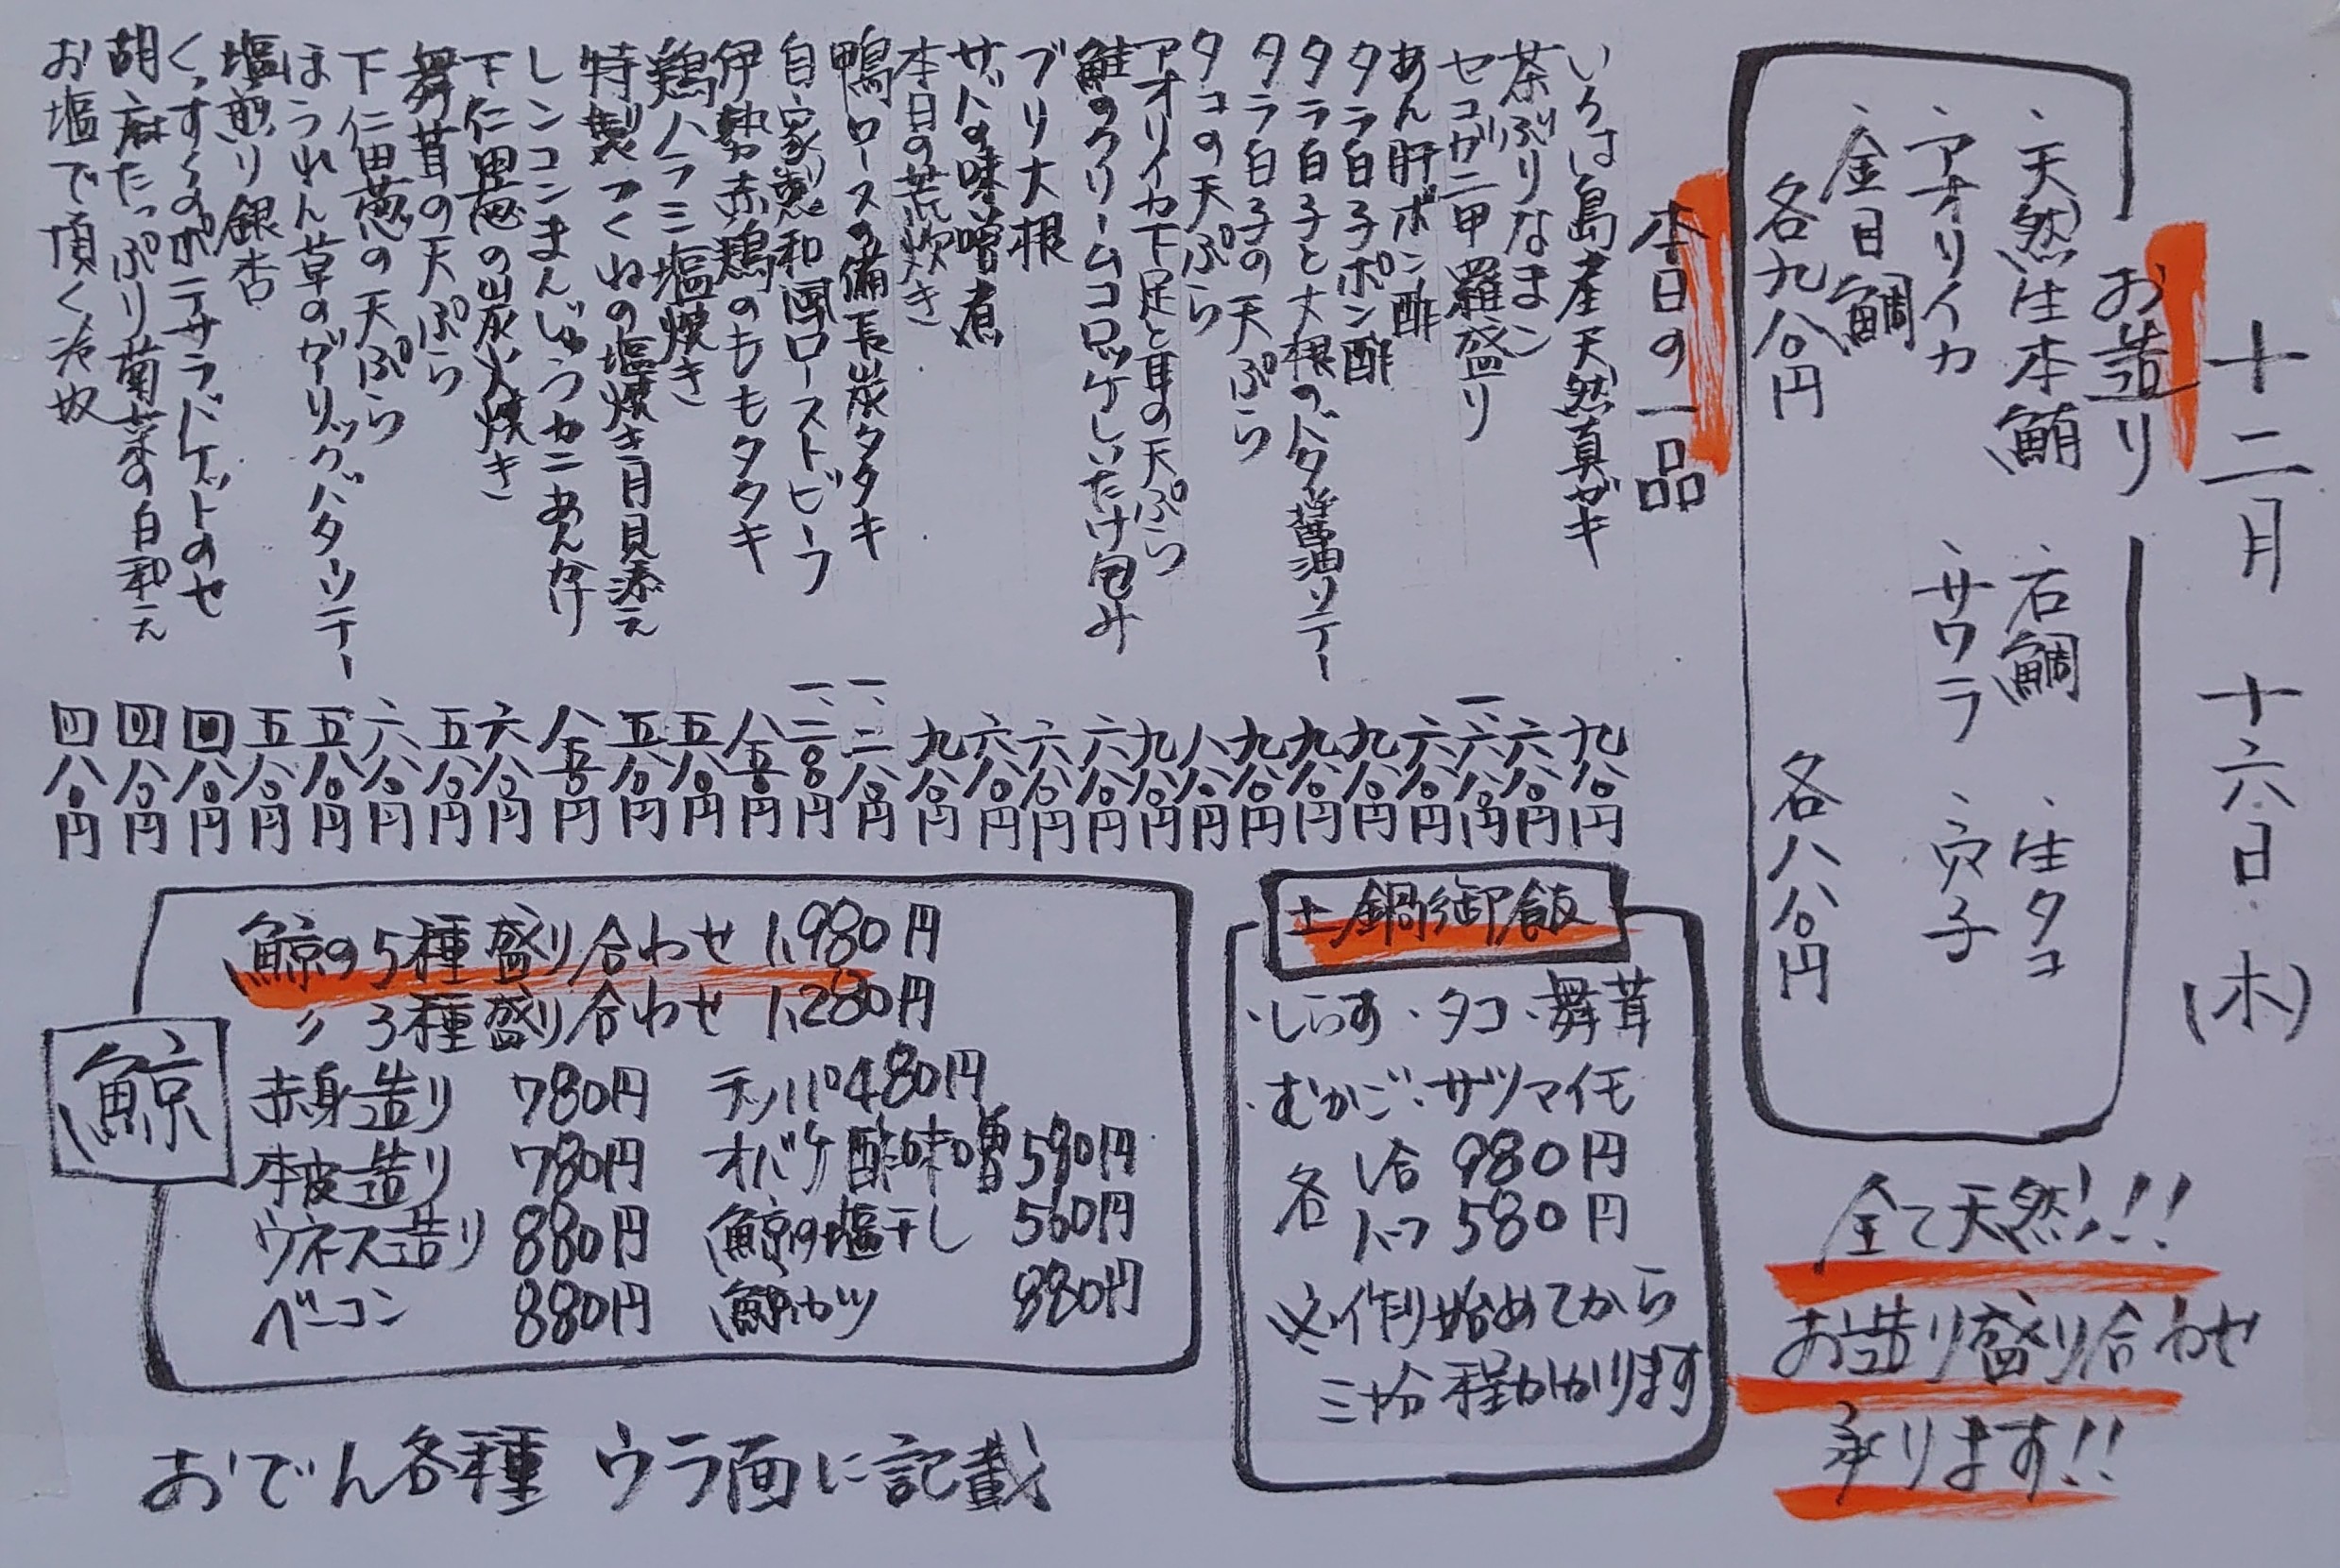 十二月 十六日(木)
お造り
、天然生本鮪 、石鯛 、生タコ
、アオリイカ 、サワラ 、穴子
、金目鯛
各九八〇円 各八八〇円
全て天然!!!
お造り盛り合わせ
承ります!!
本日の一品
いろは島産天然真ガキ 九八〇円
茶ぶりなまこ 六八〇円
セコガニ甲羅盛り 一、六八〇円
あん肝ポン酢 六八〇円
タラ白子ポン酢 九八〇円
タラ白子と大根のバター醤油ソテー 九八〇円
タラ白子の天ぷら 九八〇円
タコの天ぷら 八八〇円
アオリイカ下足と耳の天ぷら 九八〇円
鮭のクリームコロッケしいたけ包み 六八〇円
ブリ大根 六八〇円
サバの味噌煮 六八〇円
本日の荒炊き 九八〇円
鴨ロースの備長炭タタキ 一、二八〇円
自家製和風ローストビーフ 一、二八〇円
伊勢赤鶏のももタタキ 八五〇円
鶏ハラミ塩焼き 五八〇円
特製つくねの塩焼き月見添え 五八〇円
レンコンまんじゅうカニあんかけ 八五〇円
下仁田葱の炭火焼き 六八〇円
舞茸の天ぷら 五八〇円
下仁田葱の天ぷら 六八〇円
ほうれん草のガーリックバターソテー 五八〇円
塩煎り銀杏 五八〇円
くっすくのポテサラバケットのせ 四八〇円
胡麻たっぷり菊菜の白和え 四八〇円
お塩で頂く冷奴 四八〇円
土鍋御飯
・しらす・タコ・舞茸
・むかご・サツマイモ
各 1合 980円
ハーフ 580円
※作り始めてから
三十分程かかります
鯨
鯨の5種盛り合わせ 1,980円
〃 3種盛り合わせ 1,280円
赤身造り 780円 テッパ 480円
本皮造り 780円 オバケ酢味噌 590円
ウネス造り 880円 鯨の塩干し 560円
ベーコン 880円 鯨カツ 880円
おでん各種 ウラ面に記載